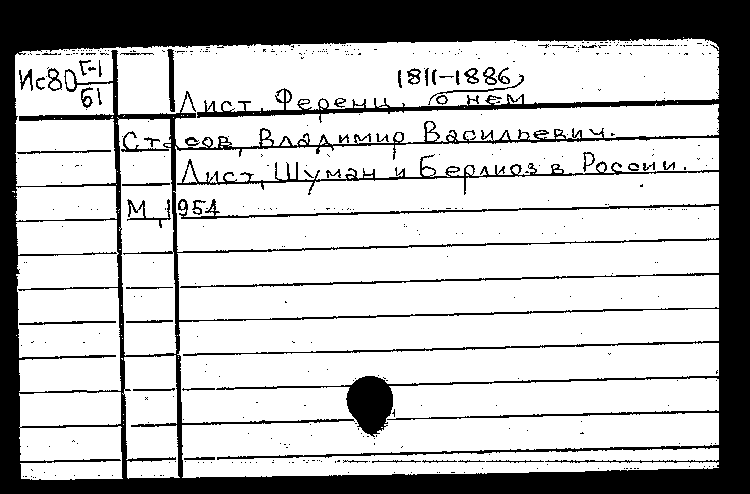 Ис80 Г-1
61
1811-1886,
Лист, Ференц, о нем
Стасов, Владимир Васильевич.
Лист, Шуман и Берлиоз в России.
М, 1954